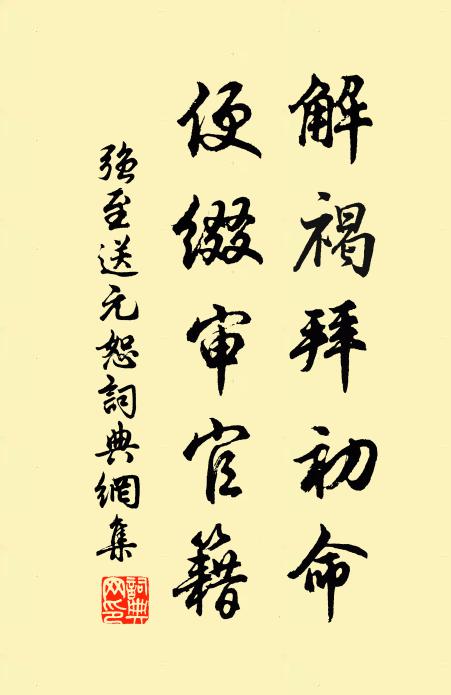 解褐拜初命
便缀审官籍
強至送元恕詞典網集
詞典网印